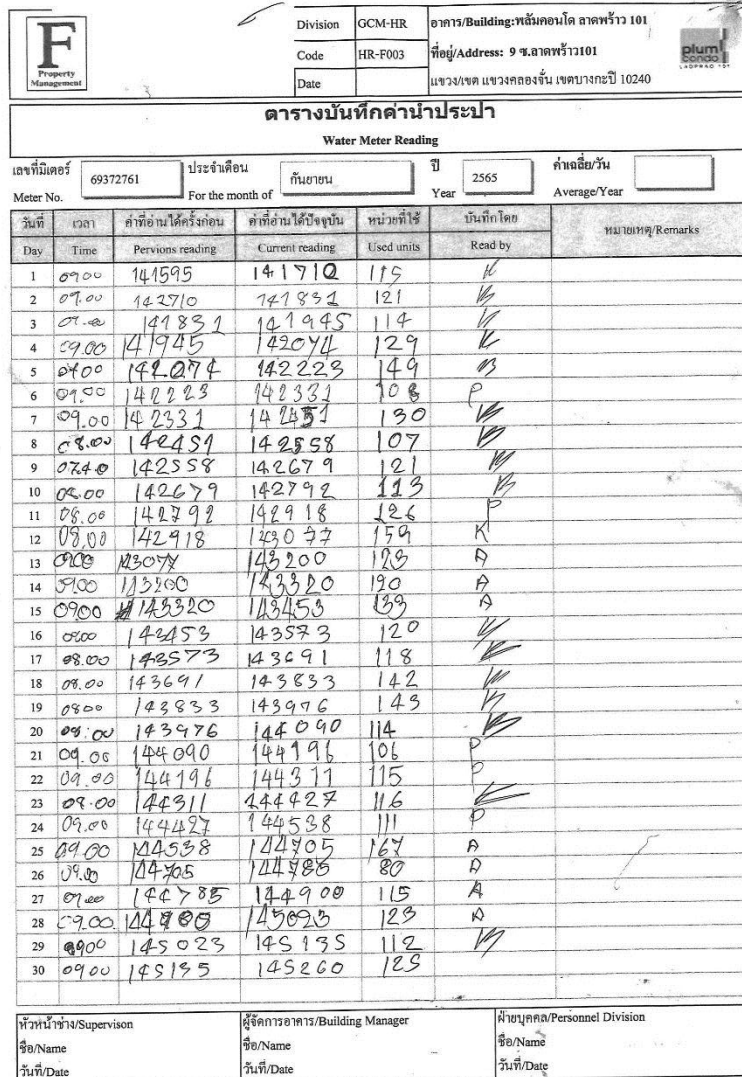 F
Property
Management
Division GCM-HR อาคาร/Building:พลัมคอนโด ลาดพร้าว 101
Code HR-F003 ที่อยู่/Address: 9 ซ.ลาดพร้าว101
Date แขวง/เขต แขวงคลองจั่น เขตบางกะปิ 10240
plum condo
LADPRAO 101
ตารางบันทึกค่าน้ำประปา
Water Meter Reading
เลขที่มิเตอร์ 69372761 ประจำเดือน กันยายน ปี 2565 ค่าเฉลี่ย/วัน
Meter No. For the month of Year Average/Year
วันที่ เวลา ค่าที่อ่านได้ครั้งก่อน ค่าที่อ่านได้ปัจจุบัน หน่วยที่ใช้ บันทึกโดย หมายเหตุ/Remarks
Day Time Pervions reading Current reading Used units Read by
1 0900 141595 141710 115
2 09.00 142710 141831 121
3 141831 141945 114
4 09.00 141945 142074 129
5 0900 142074 142223 149
6 09.00 142223 142331 108 P
7 09.00 142331 142451 130
8 08.00 142451 142558 107
9 0740 142558 142679 121
10 142679 142792 113
11 08.00 142792 142918 126 P
12 08,00 142918 143077 159 K
13 0900 143077 143200 123 A
14 09.00 143200 143320 120 A
15 0900 143320 143453 133 A
16 143453 143573 120
17 08.00 143573 143691 118
18 08.00 143691 143833 142
19 0800 143833 143976 143
20 08:00 143976 144090 114
21 09.00 144090 144196 106 P
22 09.00 144196 144311 115 P
23 08.00 144311 144427 116
24 09.00 144427 144538 111 P
25 09.00 144538 144705 167 A
26 09.00 144705 144785 80 A
27 144785 144900 115 A
28 09.00 144900 145023 123 A
29 0900 145023 145135 112
30 0900 145135 145260 125
หัวหน้าช่าง/Supervison ผู้จัดการอาคาร/Building Manager ฝ่ายบุคคล/Personnel Division
ชื่อ/Name ชื่อ/Name ชื่อ/Name
วันที่/Date วันที่/Date วันที่/Date